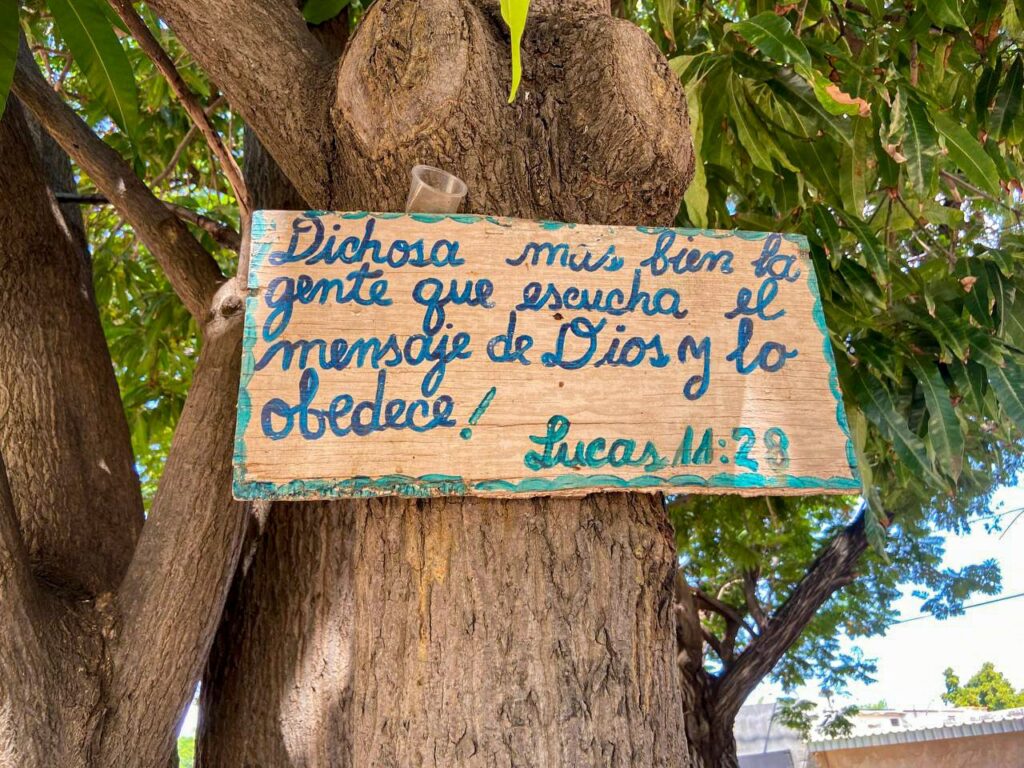 Dichosa mas bien la
gente que escucha el
mensaje de Dios y lo
obedece!
Lucas 11:28